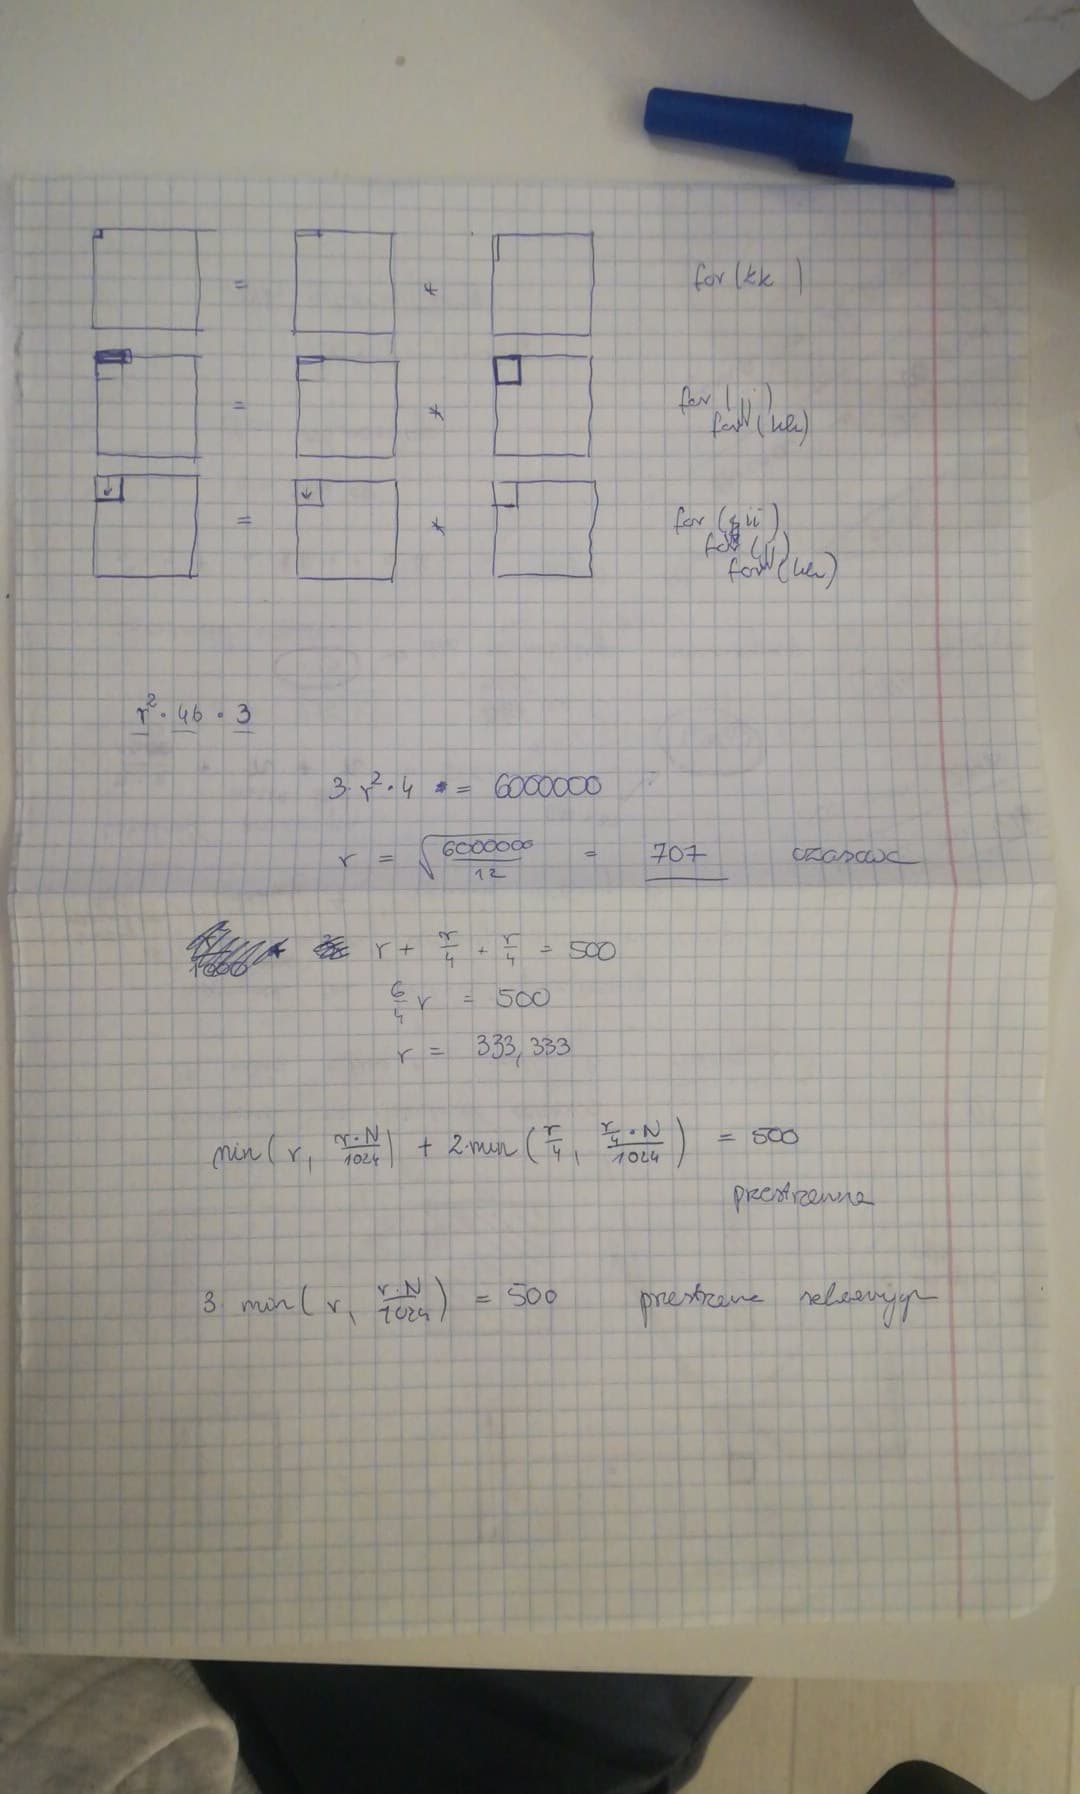 = * for (kk )
= * for (jj)
for (kk)
= * for (ii)
for (jj)
for (kk)
r² · 4b · 3
3 · r² · 4 = 6000000
r = √(6000000/12) = 707 czasowa
r + r/4 + r/4 = 500
6/4 r = 500
r = 333,333
min(r, r·N/1024) + 2·min(r/4, r/4·N/1024) = 500
przestrzenna
3 · min(r, r·N/1024) = 500